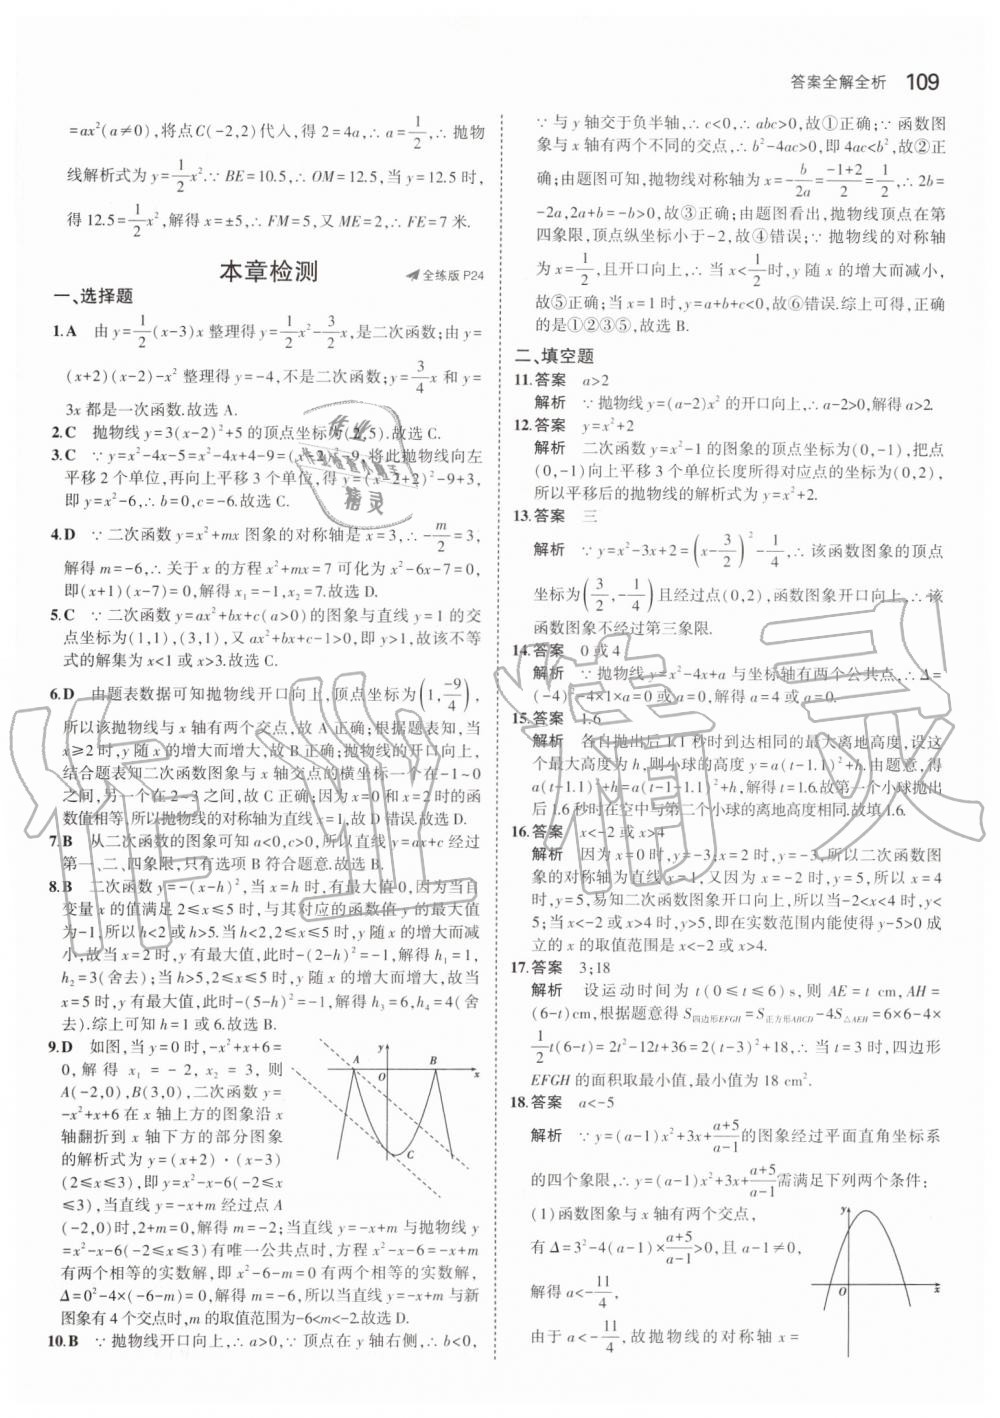 答案全解全析 109
=ax²(a≠0),将点C(-2,2)代入,得2=4a,∴a=1/2,∴抛物
线解析式为y=1/2x².∵BE=10.5,∴OM=12.5,当y=12.5时,
得12.5=1/2x²,解得x=±5,∴FM=5,又ME=2,∴FE=7米.
本章检测 全练版 P24
一、选择题
1.A 由y=1/2(x-3)x整理得y=1/2x²-3/2x,是二次函数;由y=
(x+2)(x-2)-x²整理得y=-4,不是二次函数;y=3/4x和y=
3x都是一次函数.故选A.
2.C 抛物线y=3(x-2)²+5的顶点坐标为(2,5).故选C.
3.C ∵y=x²-4x-5=x²-4x+4-9=(x-2)²-9,将此抛物线向左
平移2个单位,再向上平移3个单位,得y=(x-2+2)²-9+3,
即y=x²-6,∴b=0,c=-6.故选C.
4.D ∵二次函数y=x²+mx图象的对称轴是x=3,∴-m/2=3,
解得m=-6,∴关于x的方程x²+mx=7可化为x²-6x-7=0,
即(x+1)(x-7)=0,解得x₁=-1,x₂=7.故选D.
5.C ∵二次函数y=ax²+bx+c(a>0)的图象与直线y=1的交
点坐标为(1,1),(3,1),又ax²+bx+c-1>0,即y>1,故该不等
式的解集为x<1或x>3.故选C.
6.D 由题表数据可知抛物线开口向上,顶点坐标为(1,-9/4),
所以该抛物线与x轴有两个交点,故A正确;根据题表知,当
x≥2时,y随x的增大而增大,故B正确;抛物线的开口向上,
结合题表知二次函数图象与x轴交点的横坐标一个在-1~0
之间,另一个在2~3之间,故C正确;因为x=0和x=2时的函
数值相等,所以抛物线的对称轴为直线x=1,故D错误.故选D.
7.B 从二次函数的图象可知a<0,c>0,所以直线y=ax+c经过
第一、二、四象限,只有选项B符合题意.故选B.
8.B 二次函数y=-(x-h)²,当x=h时,有最大值0,因为当自
变量x的值满足2≤x≤5时,与其对应的函数值y的最大值
为-1,所以h<2或h>5.当h<2,2≤x≤5时,y随x的增大而减
小,故当x=2时,y有最大值,此时-(2-h)²=-1,解得h₁=1,
h₂=3(舍去);当h>5,2≤x≤5时,y随x的增大而增大,故当
x=5时,y有最大值,此时-(5-h)²=-1,解得h₃=6,h₄=4(舍
去).综上可知h=1或6.故选B.
9.D 如图,当y=0时,-x²+x+6=
0,解得x₁=-2,x₂=3,则
A(-2,0),B(3,0),二次函数y=
-x²+x+6在x轴上方的图象沿x
轴翻折到x轴下方的部分图象
的解析式为y=(x+2)·(x-3)
(2≤x≤3),即y=x²-x-6(-2≤x
≤3),当直线y=-x+m经过点A
(-2,0)时,2+m=0,解得m=-2;当直线y=-x+m与抛物线y
=x²-x-6(-2≤x≤3)有唯一公共点时,方程x²-x-6=-x+m
有两个相等的实数解,即x²-6-m=0有两个相等的实数解,
Δ=0²-4×(-6-m)=0,解得m=-6,所以当直线y=-x+m与新
图象有4个交点时,m的取值范围为-6<m<-2.故选D.
y
A B
O x
C
10.B ∵抛物线开口向上,∴a>0,∵顶点在y轴右侧,∴b<0,
∵与y轴交于负半轴,∴c<0,∴abc>0,故①正确;∵函数图
象与x轴有两个不同的交点,∴b²-4ac>0,即4ac<b²,故②正
确;由题图可知,抛物线对称轴为x=-b/2a=(-1+2)/2=1/2,∴2b=
-2a,2a+b=-b>0,故③正确;由题图看出,抛物线顶点在第
四象限,顶点纵坐标小于-2,故④错误;∵抛物线的对称轴
为x=1/2,且开口向上,∴当x<1/2时,y随x的增大而减小,
故⑤正确;当x=1时,y=a+b+c<0,故⑥错误.综上可得,正确
的是①②③⑤,故选B.
二、填空题
11.答案 a>2
解析 ∵抛物线y=(a-2)x²的开口向上,∴a-2>0,解得a>2.
12.答案 y=x²+2
解析 二次函数y=x²-1的图象的顶点坐标为(0,-1),把点
(0,-1)向上平移3个单位长度所得对应点的坐标为(0,2),
所以平移后的抛物线的解析式为y=x²+2.
13.答案 三
解析 ∵y=x²-3x+2=(x-3/2)²-1/4,∴该函数图象的顶点
坐标为(3/2,-1/4)且经过点(0,2),函数图象开口向上,∴该
函数图象不经过第三象限.
14.答案 0或4
解析 ∵抛物线y=x²-4x+a与坐标轴有两个公共点,∴Δ=
(-4)²-4×1×a=0或a=0,解得a=4或a=0.
15.答案 1.6
解析 各自抛出后1.1秒时到达相同的最大离地高度,设这
个最大高度为h,则小球的高度y=a(t-1.1)²+h.由题意,得
a(t-1.1)²+h=a(t-1-1.1)²+h,解得t=1.6.故第一个小球抛出
后1.6秒时在空中与第二个小球的离地高度相同.故填1.6.
16.答案 x<-2或x>4
解析 因为x=0时,y=-3,x=2时,y=-3,所以二次函数图
象的对称轴为直线x=1,又因为x=-2时,y=5,所以x=4
时,y=5,易知二次函数图象开口向上,所以当-2<x<4时,y<
5;当x<-2或x>4时,y>5,即在实数范围内能使得y-5>0成
立的x的取值范围是x<-2或x>4.
17.答案 3;18
解析 设运动时间为t(0≤t≤6)s,则AE=t cm,AH=
(6-t)cm,根据题意得S四边形EFGH=S正方形ABCD-4S△AEH=6×6-4×
1/2t(6-t)=2t²-12t+36=2(t-3)²+18,∴当t=3时,四边形
EFGH的面积取最小值,最小值为18 cm².
18.答案 a<-5
解析 ∵y=(a-1)x²+3x+(a+5)/(a-1)的图象经过平面直角坐标系
的四个象限,∴y=(a-1)x²+3x+(a+5)/(a-1)需满足下列两个条件:
(1)函数图象与x轴有两个交点,
有Δ=3²-4(a-1)×(a+5)/(a-1)>0,且a-1≠0,
解得a<-11/4,
由于a<-11/4,故抛物线的对称轴x=
y
O x
作业精灵